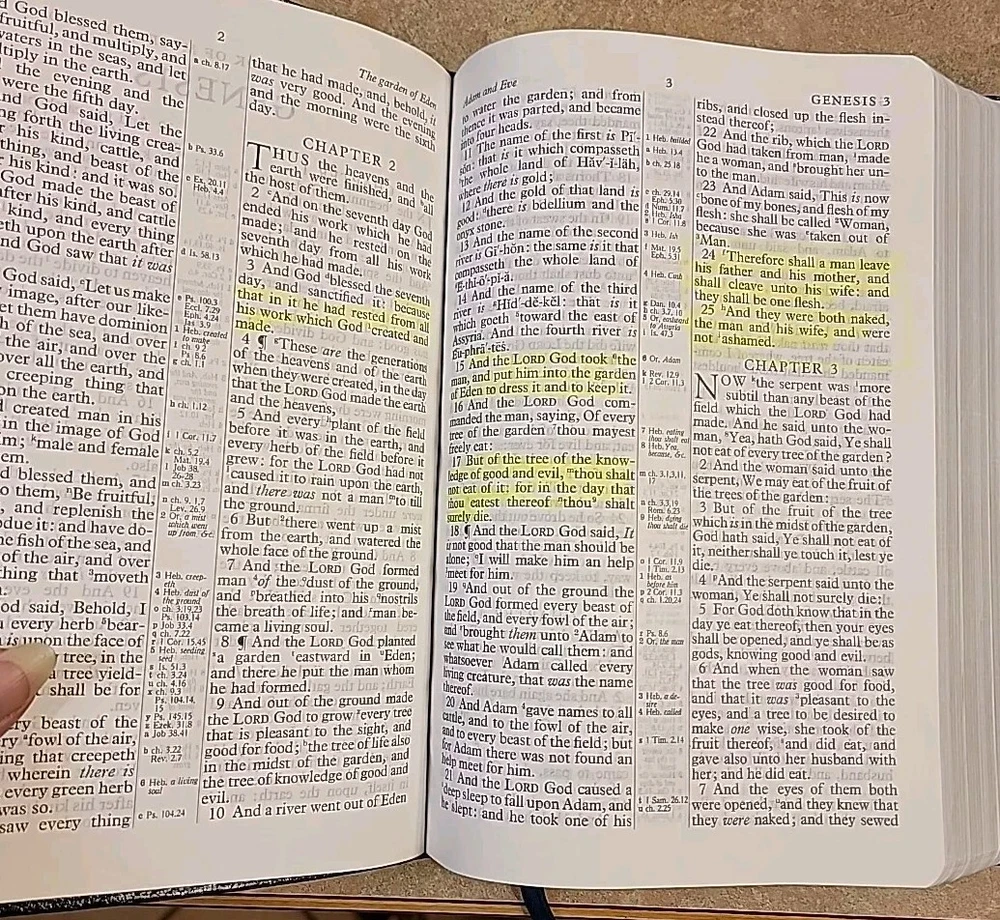 2
God blessed them, say-
fruitful, and multiply, and
waters in the seas, and let
tiply in the earth.
the evening and the
were the fifth day.
God said, Let the
ng forth the living crea-
his kind, cattle, and
thing, and beast of the
his kind: and it was so.
God made the beast of
after his kind, and cattle
kind, and every thing
eth upon the earth after
nd God saw that it was
God said, Let us make
image, after our like-
et them have dominion
h of the sea, and over
the air, and over the
over all the earth, and
creeping thing that
on the earth.
created man in his
in the image of God
im; male and female
em.
d blessed them, and
o them, Be fruitful,
, and replenish the
due it: and have do-
he fish of the sea, and
of the air, and over
thing that moveth
od said, Behold, I
every herb bear-
is upon the face of
tree, in the
a tree yield-
shall be for
ry beast of the
ry fowl of the air,
ing that creepeth
wherein there is
every green herb
was so.
saw every thing
a ch. 8.17
b Ps. 33.6
c Ex. 20.11
Heb. 4.4
d Is. 58.13
e Ps. 100.3
Eccl. 7.29
Eph. 4.24
Jas. 3.9
1 Heb. created
to make
f ch. 9.2
Ps. 8.6
g ch. 1.1
h ch. 1.12
i 1 Cor. 11.7
k ch. 5.2
Mat. 19.4
l Job 38.
26-28
m ch. 3.23
n ch. 9. 1,7
Lev. 26.9
2 Or, a mist
which went
up from &c.
3 Heb. creep-
eth
4 Heb. dust of
the ground
o ch. 3.19,23
p Job 33.4
q ch. 7.22
r 1 Cor. 15.45
5 Heb. seeding
seed
s Is. 51.3
t ch. 3.24
u ch. 4.16
x ch. 9.3
Ps. 104.14,
15
y Ps. 145.15
z Ezek. 31.8
a Job 38.41
b ch. 3.22
Rev. 2.7
6 Heb. a living
soul
c Ps. 104.24
The garden of Eden
that he had made, and, behold, it
was very good. And the evening
and the morning were the sixth
day.
CHAPTER 2
THUS the heavens and the
earth were finished, and all
the host of them.
2 And on the seventh day God
ended his work which he had
made; and he rested on the
seventh day from all his work
which he had made.
3 And God blessed the seventh
day, and sanctified it: because
that in it he had rested from all
his work which God created and
made.
4 ¶ These are the generations
of the heavens and of the earth
when they were created, in the day
that the LORD God made the earth
and the heavens,
5 And every plant of the field
before it was in the earth, and
every herb of the field before it
grew: for the LORD God had not
caused it to rain upon the earth,
and there was not a man to till
the ground.
6 But there went up a mist
from the earth, and watered the
whole face of the ground.
7 And the LORD God formed
man of the dust of the ground,
and breathed into his nostrils
the breath of life; and man be-
came a living soul.
8 ¶ And the LORD God planted
a garden eastward in Eden;
and there he put the man whom
he had formed.
9 And out of the ground made
the LORD God to grow every tree
that is pleasant to the sight, and
good for food; the tree of life also
in the midst of the garden, and
the tree of knowledge of good and
evil.
10 And a river went out of Eden
Adam and Eve
3
GENESIS 3
to water the garden; and from
thence it was parted, and became
into four heads.
11 The name of the first is Pī'-
sŏn: that is it which compasseth
the whole land of Hăv'-ĭ-läh,
where there is gold;
12 And the gold of that land is
good: there is bdellium and the
onyx stone.
13 And the name of the second
river is Gī'-hŏn: the same is it that
compasseth the whole land of
E-thĭ-ō'-pĭ-ă.
14 And the name of the third
river is Hĭd'-dĕ-kĕl: that is it
which goeth toward the east of
Assyria. And the fourth river is
Eu-phrā'-tēs.
15 And the LORD God took the
man, and put him into the garden
of Eden to dress it and to keep it.
16 And the LORD God com-
manded the man, saying, Of every
tree of the garden thou mayest
freely eat:
17 But of the tree of the know-
ledge of good and evil, thou shalt
not eat of it: for in the day that
thou eatest thereof thou shalt
surely die.
18 ¶ And the LORD God said, It
is not good that the man should be
alone; I will make him an help
meet for him.
19 And out of the ground the
LORD God formed every beast of
the field, and every fowl of the air;
and brought them unto Adam to
see what he would call them: and
whatsoever Adam called every
living creature, that was the name
thereof.
20 And Adam gave names to all
cattle, and to the fowl of the air,
and to every beast of the field; but
for Adam there was not found an
help meet for him.
21 And the LORD God caused a
deep sleep to fall upon Adam, and
he slept: and he took one of his
1 Heb. builded
a Heb. 13.4
b ch. 25.18
c ch. 29.14
Eph. 5.30
d Num. 11.7
2 Heb. Isha
e 1 Cor. 11.8
3 Heb. Ish
f Mat. 19.5
Eph. 5.31
4 Heb. Cush
g Dan. 10.4
h ch. 3.7,10
5 Or, eastward
to Assyria
i Is. 47.3
6 Or, Adam
k Rev. 12.9
l 2 Cor. 11.3
7 Heb. eating
thou shalt eat
8 Heb. Yea,
because, &c.
m ch. 3.1,3,11,
17
n ch. 3.3,19
Rom. 6.23
9 Heb. dying
thou shalt die
o 1 Cor. 11.9
1 Tim. 2.13
1 Heb. as
before him
p 2 Cor. 11.3
q ch. 1.20,24
r Ps. 8.6
2 Or, the man
3 Heb. a de-
sire
4 Heb. called
s 1 Tim. 2.14
t 1 Sam. 26.12
u ch. 2.25
ribs, and closed up the flesh in-
stead thereof;
22 And the rib, which the LORD
God had taken from man, made
he a woman, and brought her un-
to the man.
23 And Adam said, This is now
bone of my bones, and flesh of my
flesh: she shall be called Woman,
because she was taken out of
Man.
24 Therefore shall a man leave
his father and his mother, and
shall cleave unto his wife: and
they shall be one flesh.
25 And they were both naked,
the man and his wife, and were
not ashamed.
CHAPTER 3
NOW the serpent was more
subtil than any beast of the
field which the LORD God had
made. And he said unto the wo-
man, Yea, hath God said, Ye shall
not eat of every tree of the garden?
2 And the woman said unto the
serpent, We may eat of the fruit of
the trees of the garden:
3 But of the fruit of the tree
which is in the midst of the garden,
God hath said, Ye shall not eat of
it, neither shall ye touch it, lest ye
die.
4 And the serpent said unto the
woman, Ye shall not surely die:
5 For God doth know that in the
day ye eat thereof, then your eyes
shall be opened, and ye shall be as
gods, knowing good and evil.
6 And when the woman saw
that the tree was good for food,
and that it was pleasant to the
eyes, and a tree to be desired to
make one wise, she took of the
fruit thereof, and did eat, and
gave also unto her husband with
her; and he did eat.
7 And the eyes of them both
were opened, and they knew that
they were naked; and they sewed